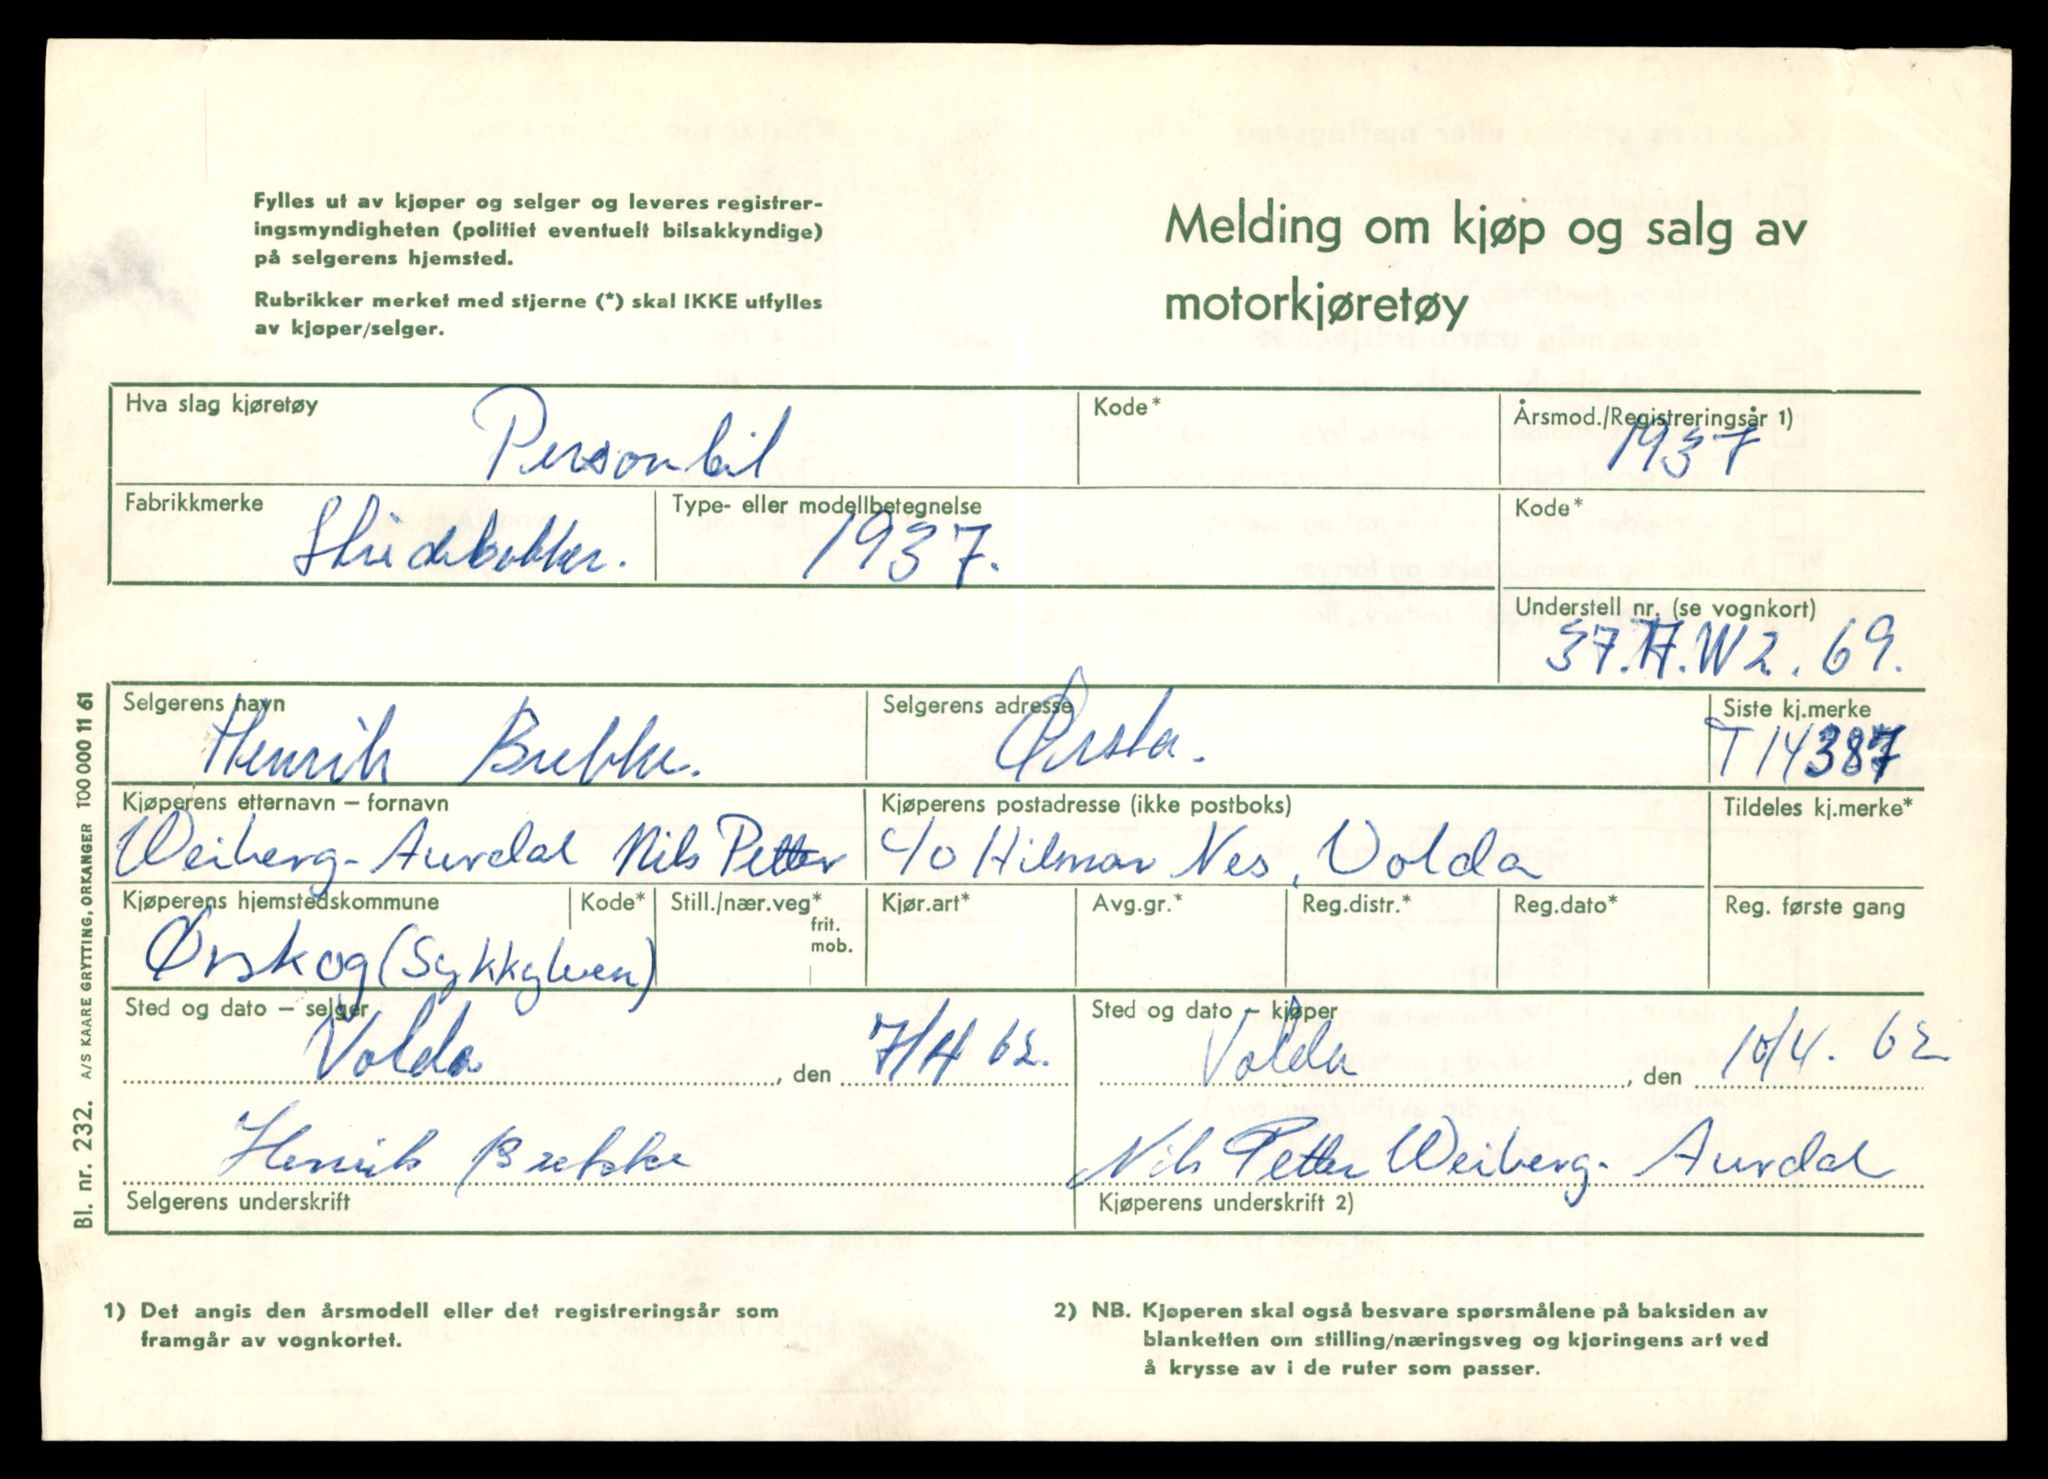 Fylles ut av kjøper og selger og leveres registrer-
ingsmyndigheten (politiet eventuelt bilsakkyndige)
på selgerens hjemsted.
Rubrikker merket med stjerne (*) skal IKKE utfylles
av kjøper/selger.
Melding om kjøp og salg av
motorkjøretøy
Hva slag kjøretøy
Personbil
Kode*
Årsmod./Registreringsår 1)
1937
Fabrikkmerke
Type- eller modellbetegnelse
1937.
Kode*
Understell nr. (se vognkort)
W2.69.
Selgerens navn
Henrik Brekke.
Selgerens adresse
Ørsta.
Siste kj.merke
T14387
Kjøperens etternavn – fornavn
Weiberg-Aurdal Nils Petter
Kjøperens postadresse (ikke postboks)
c/o Hilmar Nes, Volda
Tildeles kj.merke*
Kjøperens hjemstedskommune
Ørskog (Sykkylven)
Kode*
Still./nær.veg*
frit.
mob.
Kjør.art*
Avg.gr.*
Reg.distr.*
Reg.dato*
Reg. første gang
Sted og dato – selger
Volda , den 7/4 62.
Henrik Brekke
Selgerens underskrift
Sted og dato – kjøper
Volda , den 10/4. 62
Nils Petter Weiberg-Aurdal
Kjøperens underskrift 2)
1) Det angis den årsmodell eller det registreringsår som
framgår av vognkortet.
2) NB. Kjøperen skal også besvare spørsmålene på baksiden av
blanketten om stilling/næringsveg og kjøringens art ved
å krysse av i de ruter som passer.
Bl. nr. 232. A/S KAARE GRYTTING, ORKANGER 100 000 11 61